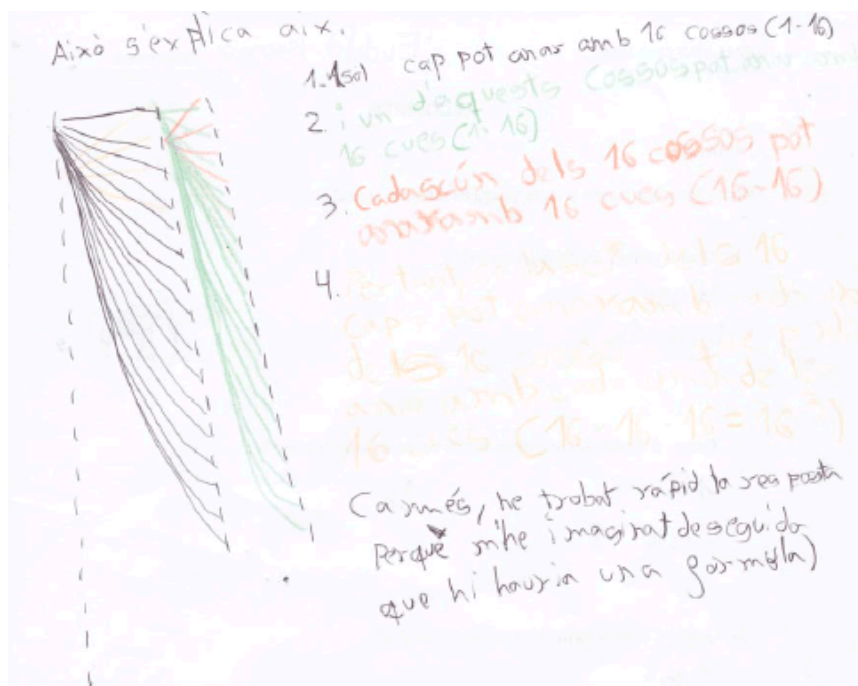 Això s'explica aix.
1. 1 sol cap pot anar amb 16 cossos (1·16)
2. i un d'aquests cossos pot anar amb
16 cues (1·16)
3. Cadascún dels 16 cossos pot
anar amb 16 cues (16·16)
4.
16
cap pot anar amb
dels 16
anar amb
16 (16·16·16=16³)
(a més, he trobat rápid la resposta
Perquè m'he imaginat deseguida
que hi hauria una formula)